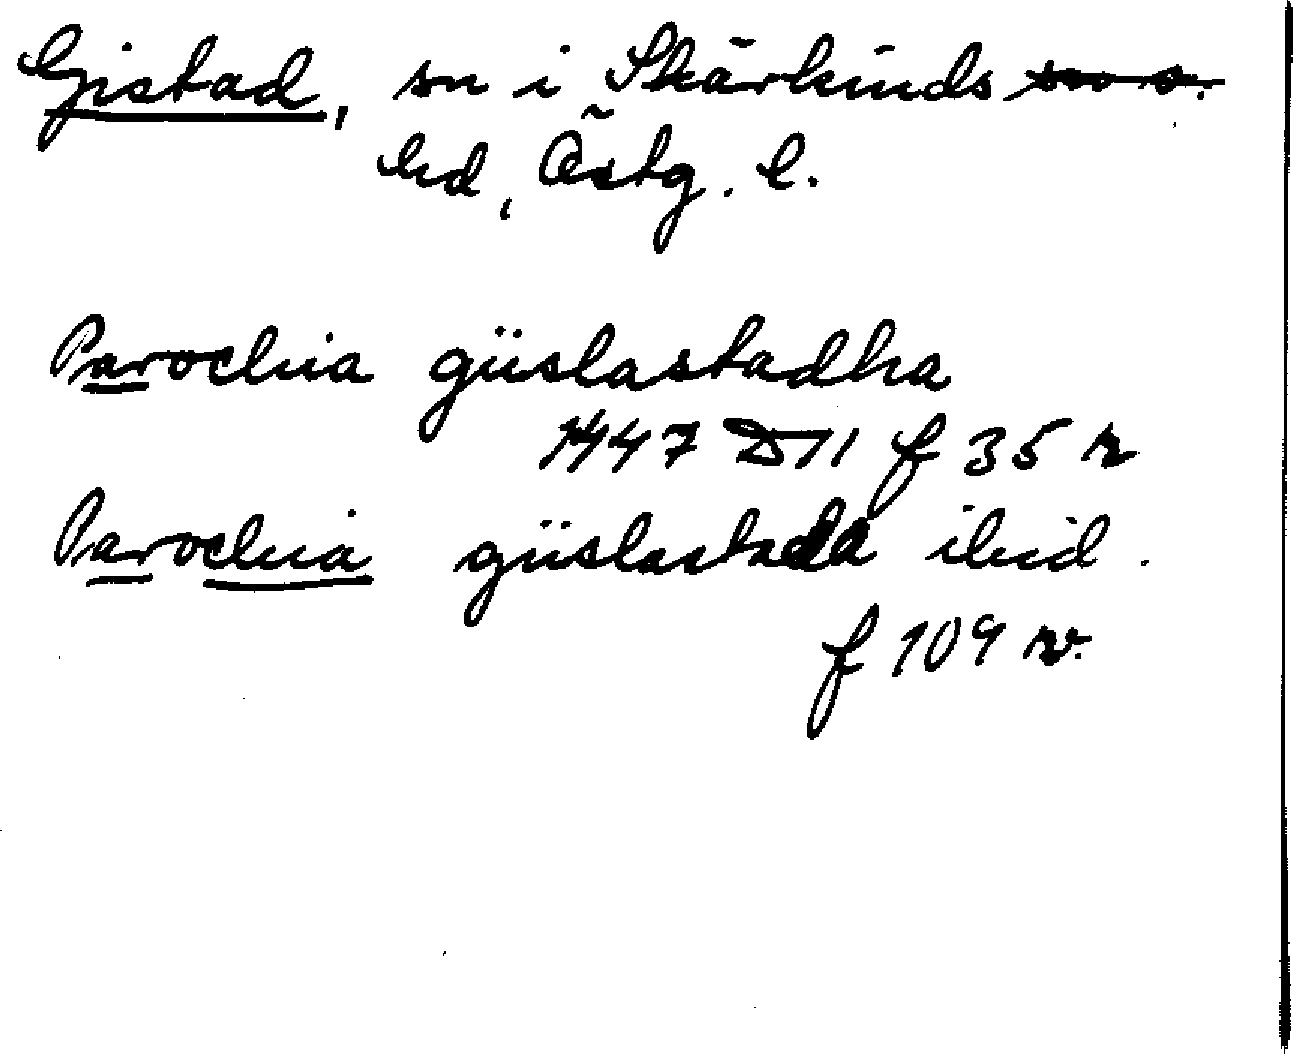 Gistad, sn i Skärkinds
hd, Östg. l.
Parochia giislastadha
1447 D 11 f 35 r
Parochia giislastada ibid.
f 109 v.